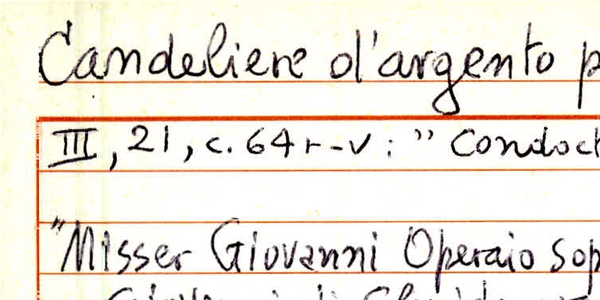 Candeliere d'argento p
III, 21, c. 64 r-v: " Condoct
"Misser Giovanni Operaio sop